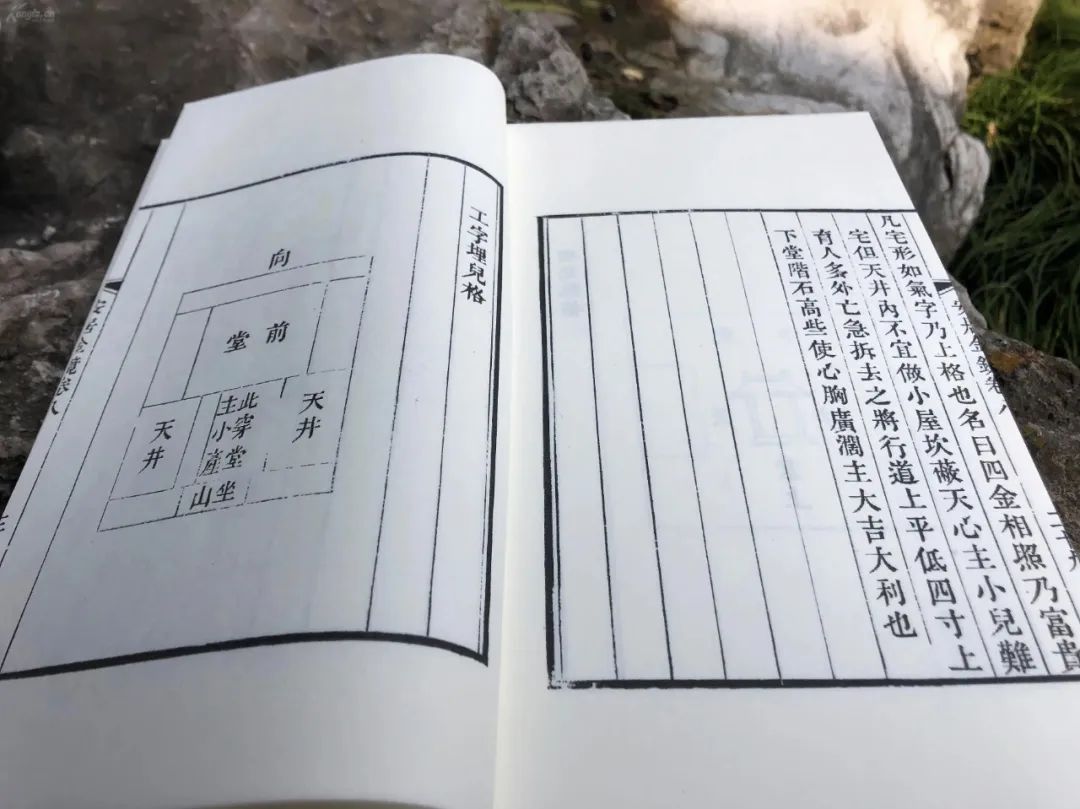 凡宅形如氣字乃上格也名曰四金相照乃富貴
宅但天井內不宜做小屋坎蔽天心主小兒難
育人多外亡急拆去之將行道上平低四寸上
下堂階石高些使心胸廣濶主大吉大利也
安居金鏡卷八
工字埋兒格
向
前堂
天井
此穿堂
主小產
天井
坐山
安居金鏡卷八